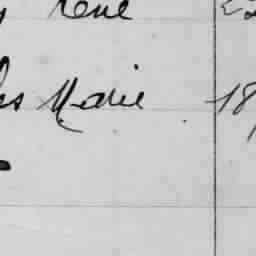 René
es Marie 18